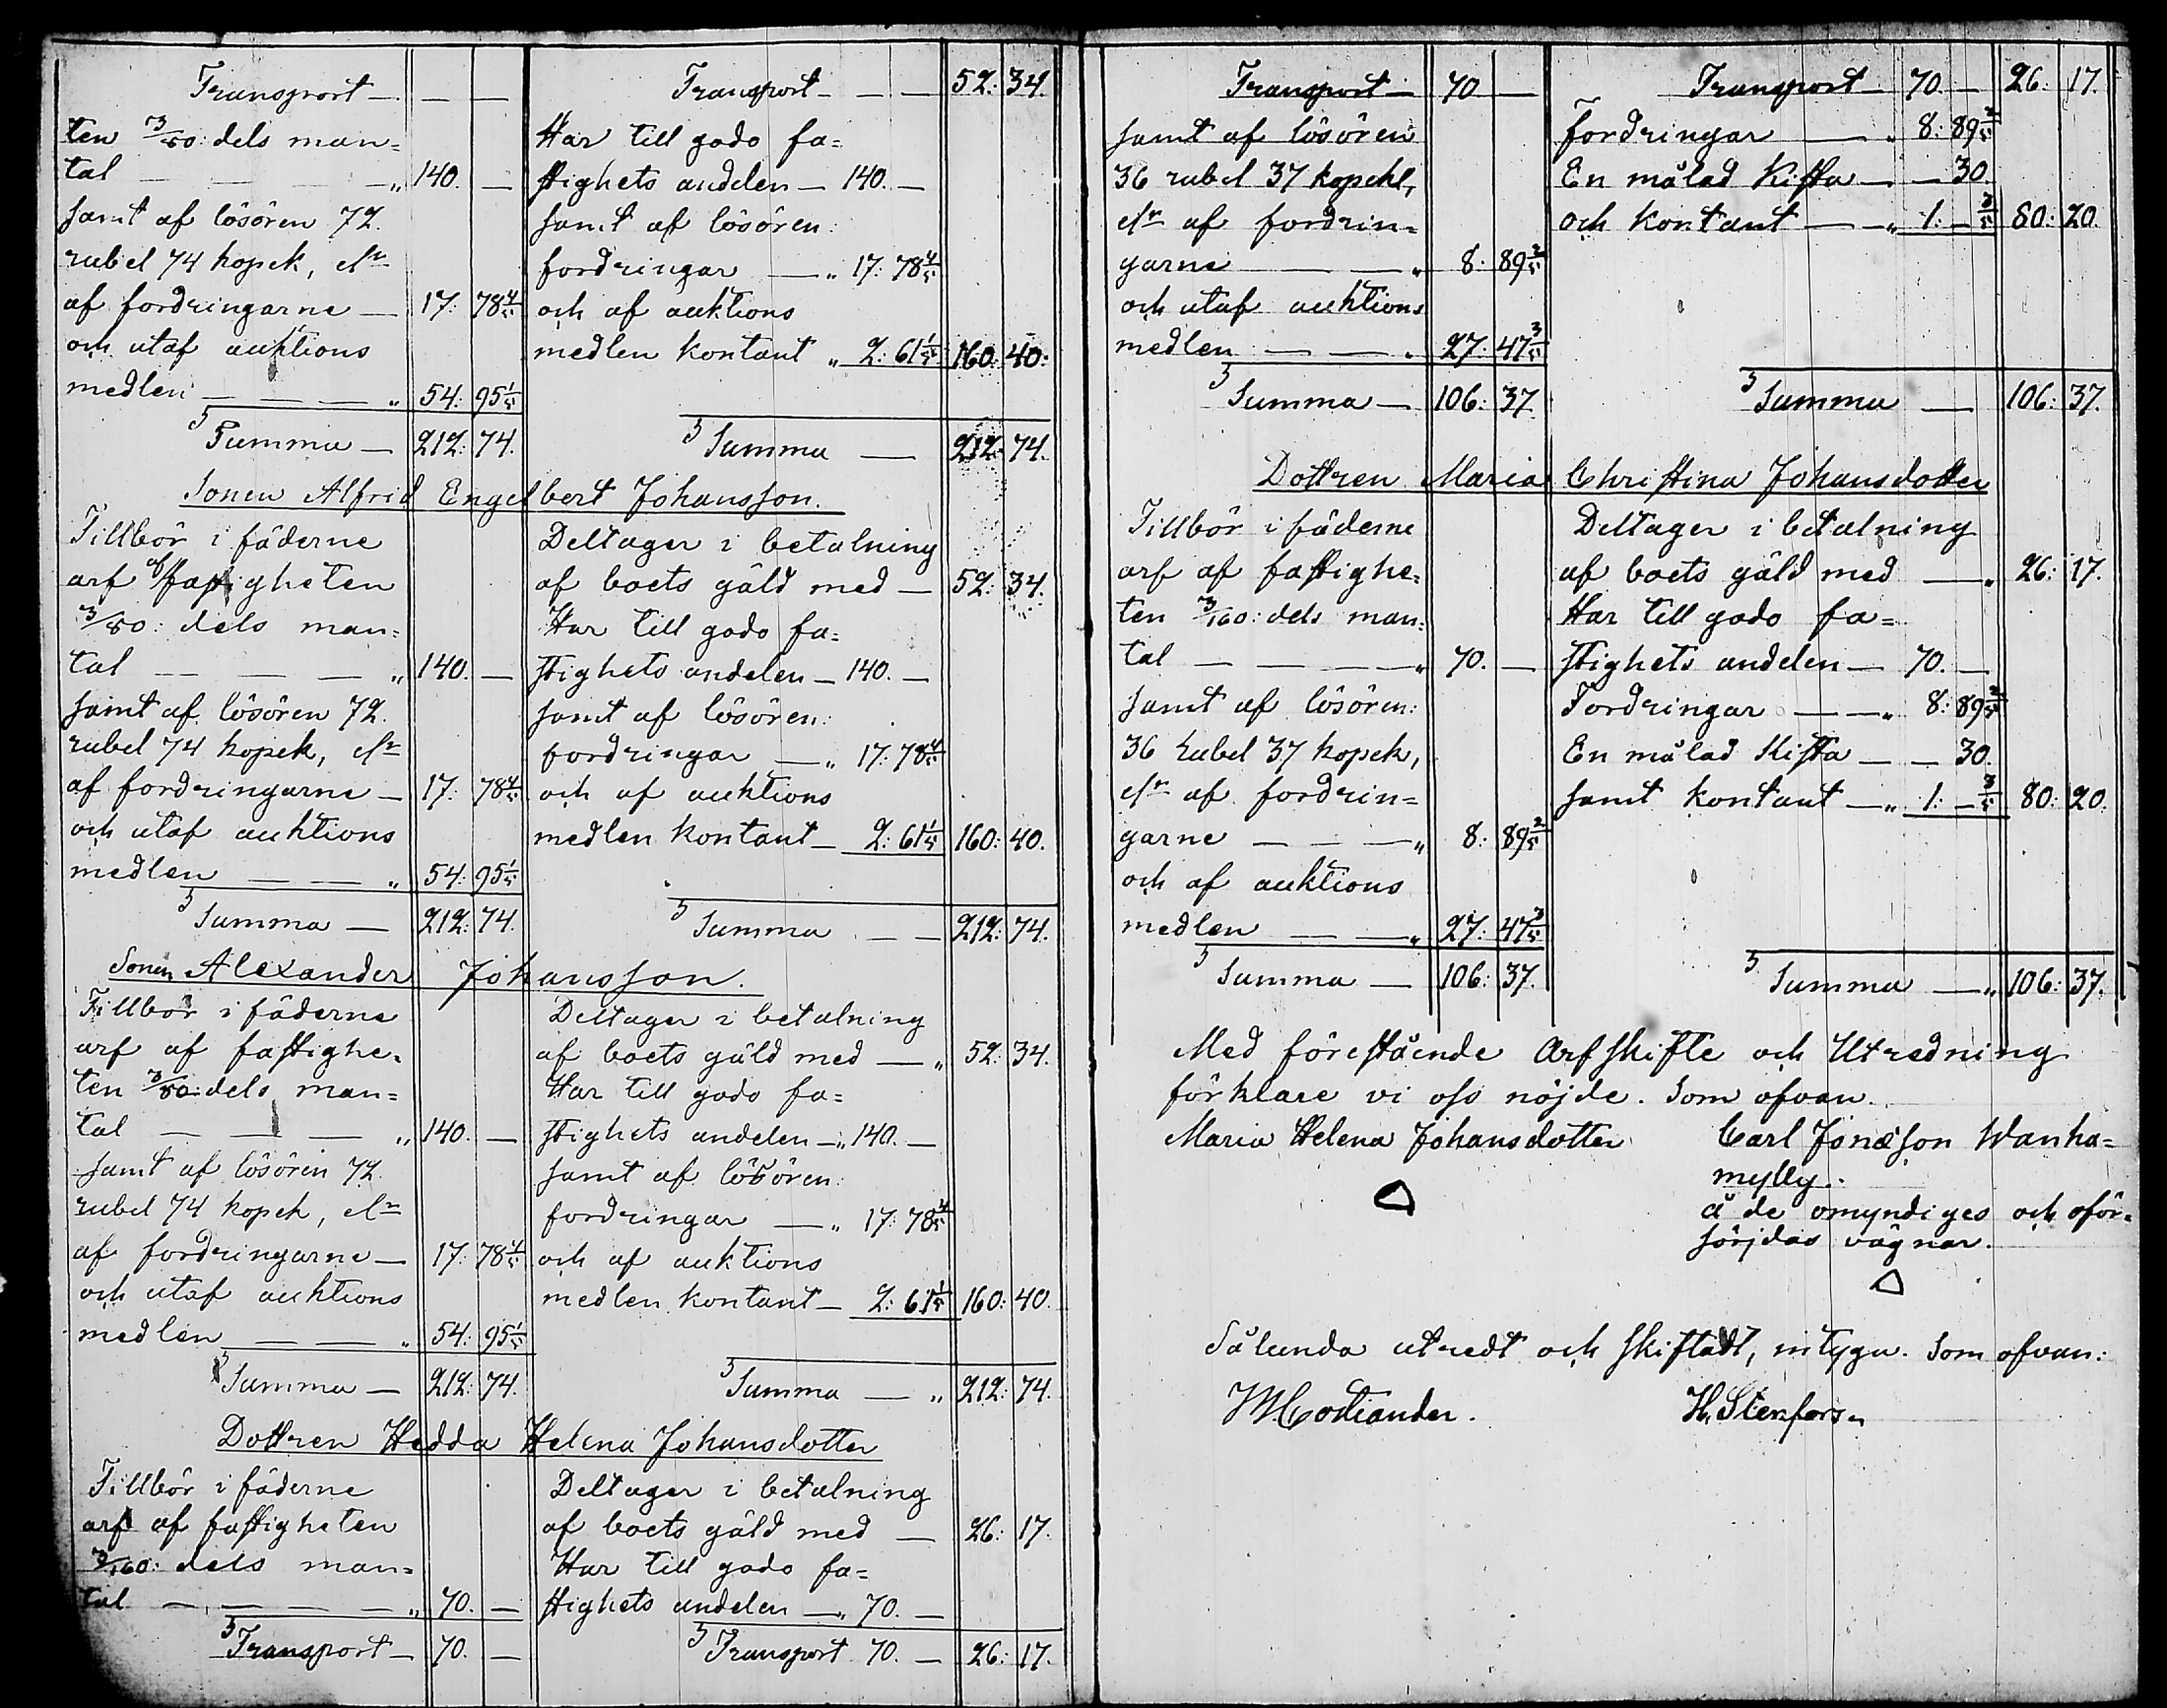 Transport — — —
ten 3/80: dels man=
tal — — — „ 140. —
samt af lösören 72.
rubel 74 kopek, elr
af fordringarne — 17: 78 4/5
och utaf auktions
medlen — — — „ 54: 95 1/5
Summa — 212: 74.
Transport — — — 52: 34.
Har till godo fa=
stighets andelen — 140. —
samt af lösören:
fordringar — „ 17: 78 4/5
och af auktions
medlen kontant „ 2: 61 1/5 160: 40:
Summa — 212: 74.
Sonen Alfrid Engelbert Johansson.
Tillbör i fäderne
arf af fastigheten
3/80: dels man=
tal — — — „ 140. —
samt af lösören 72.
rubel 74 kopek, elr
af fordringarne — 17: 78 4/5
och utaf auktions
medlen — — „ 54: 95 1/5
Summa — 212: 74.
Deltager i betalning
af boets gäld med — 52: 34.
Har till godo fa=
stighets andelen — 140. —
samt af lösören:
fordringar — „ 17: 78 4/5
och af auktions
medlen kontant — 2: 61 1/5 160: 40.
Summa — — 212: 74.
Sonen Alexander Johansson.
Tillbör i fäderne
arf af fastighe=
ten 3/80: dels man=
tal — — — „ 140. —
samt af lösören 72.
rubel 74 kopek, elr
af fordringarne — 17: 78 4/5
och utaf auktions
medlen — — „ 54: 95 1/5
Summa — 212: 74.
Deltager i betalning
af boets gäld med — „ 52: 34.
Har till godo fa=
stighets andelen — „ 140. —
samt af lösören:
fordringar — „ 17: 78 4/5
och af auktions
medlen kontant — 2: 61 1/5 160: 40.
Summa — „ 212: 74.
Dottren Hedda Helena Johansdotter
Tillbör i fäderne
arf af fastigheten
3/160: dels man=
tal — — — — „ 70. —
Transport — 70. —
Deltager i betalning
af boets gäld med — 26: 17.
Har till godo fa=
stighets andelen — „ 70. —
Transport 70. — 26: 17.
Transport — 70 —
samt af lösören
36 rubel 37 kopek,
elr af fordrin=
garne — — „ 8: 89 2/5
och utaf auktions
medlen — — „ 27: 47 3/5
Summa — 106: 37.
Transport 70. — 26: 17.
fordringar — „ 8: 89 2/5
En målad Kista — — 30.
och kontant — „ 1: — 3/5 80: 20.
Summa — 106: 37.
Dottren Maria Christina Johansdotter
Tillbör i fäderne
arf af fastighe=
ten 3/160: dels man=
tal — — — „ 70. —
samt af lösören:
36 rubel 37 kopek,
elr af fordrin=
garne — — — „ 8: 89 2/5
och af auktions
medlen — — „ 27: 47 3/5
Summa — 106: 37.
Deltager i betalning
af boets gäld med — „ 26: 17.
Har till godo fa=
stighets andelen — 70. —
Fordringar — — „ 8: 89 2/5
En målad Kista — — 30.
samt kontant — „ 1: — 3/5 80: 20.
Summa — „ 106: 37.
Med förestående Arfskifte och Utredning
förklare vi oss nöjde. Som ofvan.
Maria Helena Johansdotter Carl Jonasson Wanha=
mylly.
å de omyndiges och oför=
sörjdas vägnar.
Sålunda utredt och skiftadt, intyga. Som ofvan:
H. Stenfors.